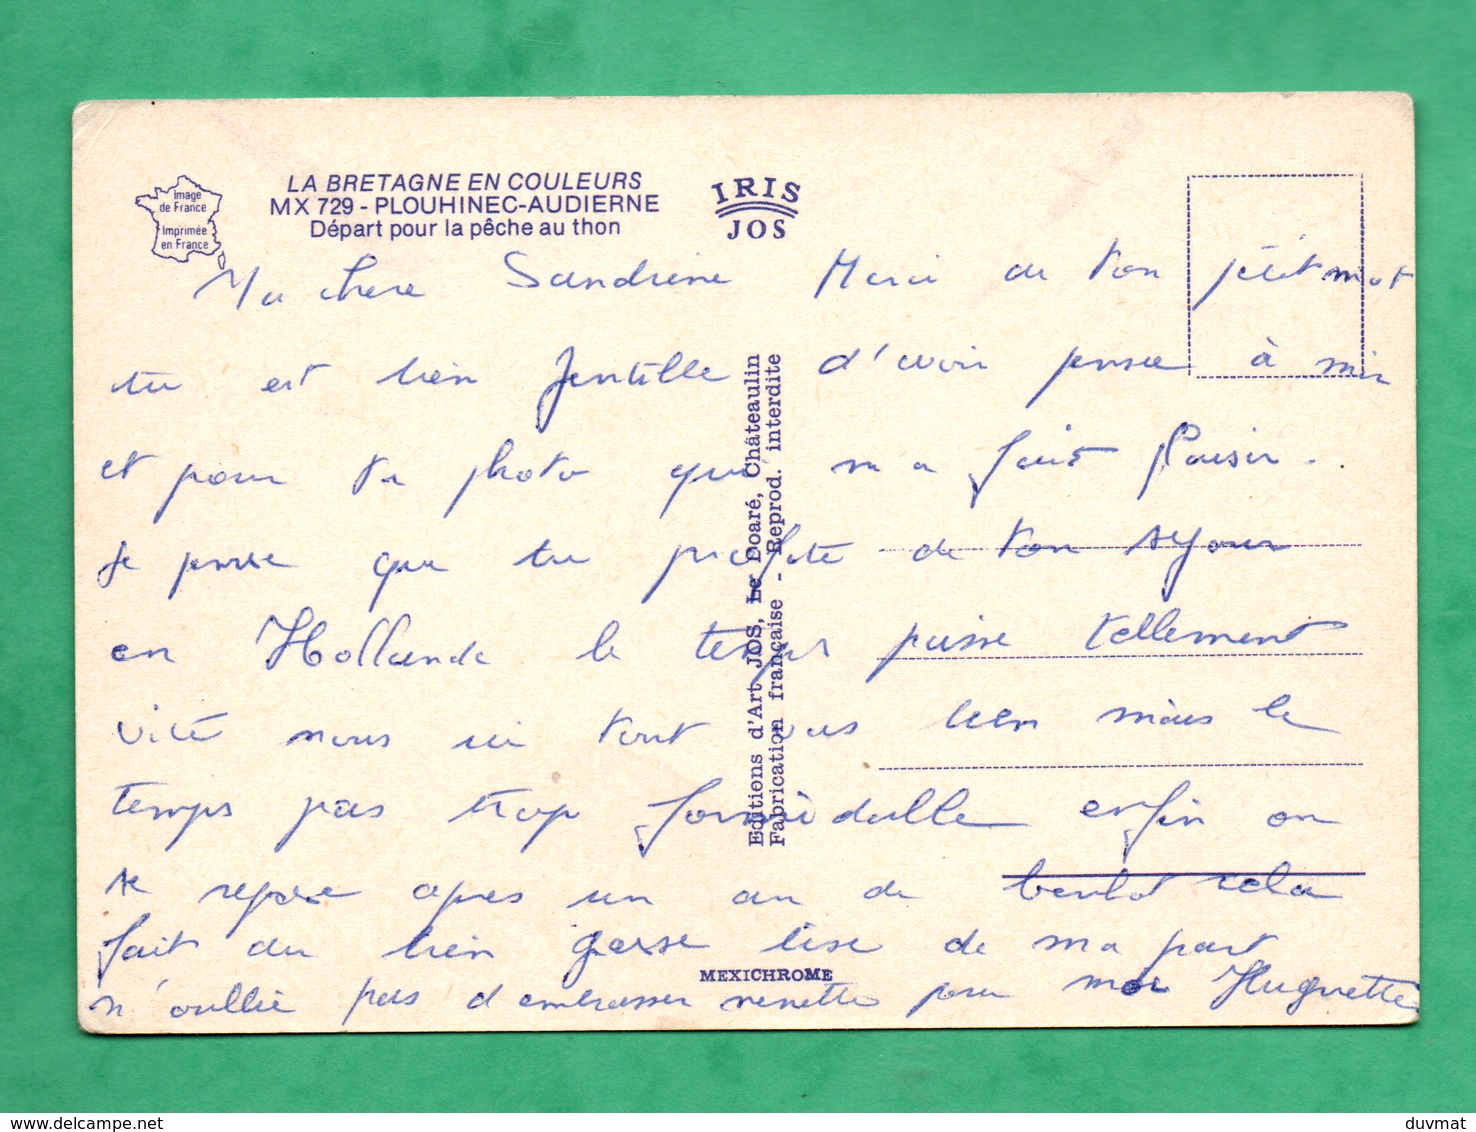 Image
de France
Imprimée
en France
LA BRETAGNE EN COULEURS
MX 729 - PLOUHINEC-AUDIERNE
Départ pour la pêche au thon
IRIS
JOS
Ma chere Sandrine Merci de ton petit mot
tu est bien Jentille d'avoir pensee à moi
et pour ta photo qui m a fait Plaisir.
Je pense que tu profite de ton sejour
en Hollande le temps passe tellement
vite nous ici tout vas bien mais le
temps pas trop formidalle enfin on
se repose apres un an de boulot cela
fait du bien grosse bise de ma part
n'oublie pas d embrasser nenette pour moi Huguette
Editions d'Art JOS, Le Doaré, Châteaulin
Fabrication française - Reprod. interdite
MEXICHROME
duvmat